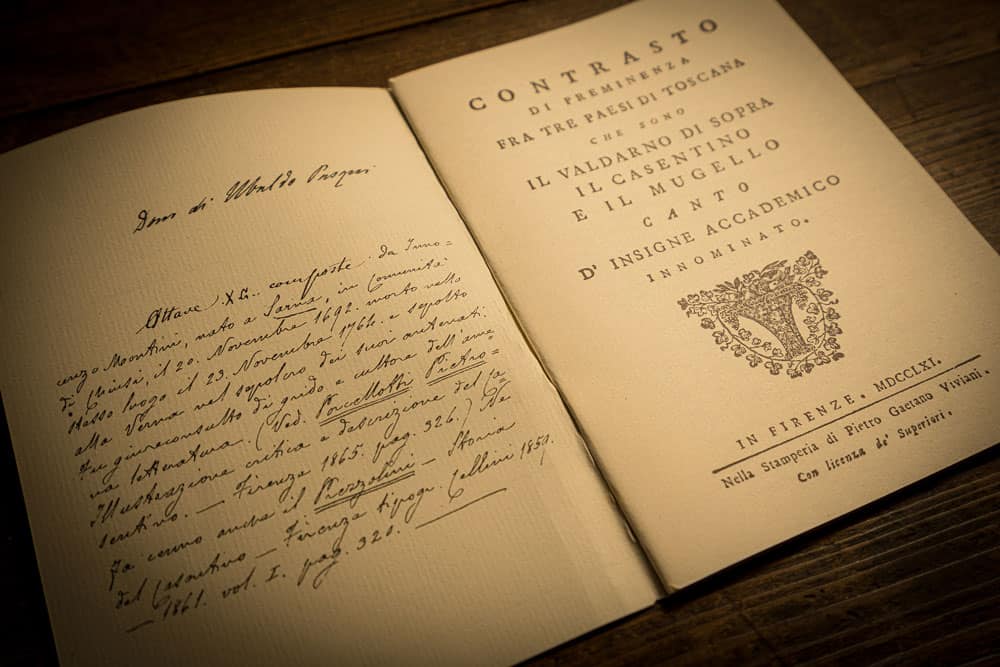 Dono di Ubaldo Pasqui.
Ottave XL. composte da Inno=
cenzo Montini, nato a Sarna, in Comunità
di Chiusi, il 20. Novembre 1692. morto nello
stesso luogo il 23. Novembre 1764. e sepolto
alla Verna nel sepolcro dei suoi antenati.
Fu giureconsulto di grido e cultore dell'ame=
na letteratura. (Ved. Porcellotti Pietro=
Illustrazione critica e descrizione del Ca=
sentino. — Firenze 1865. pag. 326.) Ne
fa cenno anche il Prezzolini — Storia
del Casentino — Firenze tipogr. Cellini 1859.
— 1861. vol. I. pag. 320. —
CONTRASTO
DI PREMINENZA
FRA TRE PAESI DI TOSCANA
CHE SONO
IL VALDARNO DI SOPRA
IL CASENTINO
E IL MUGELLO
CANTO
D' INSIGNE ACCADEMICO
INNOMINATO.
IN FIRENZE. MDCCLXI.
Nella Stamperia di Pietro Gaetano Viviani.
Con licenza de' Superiori.